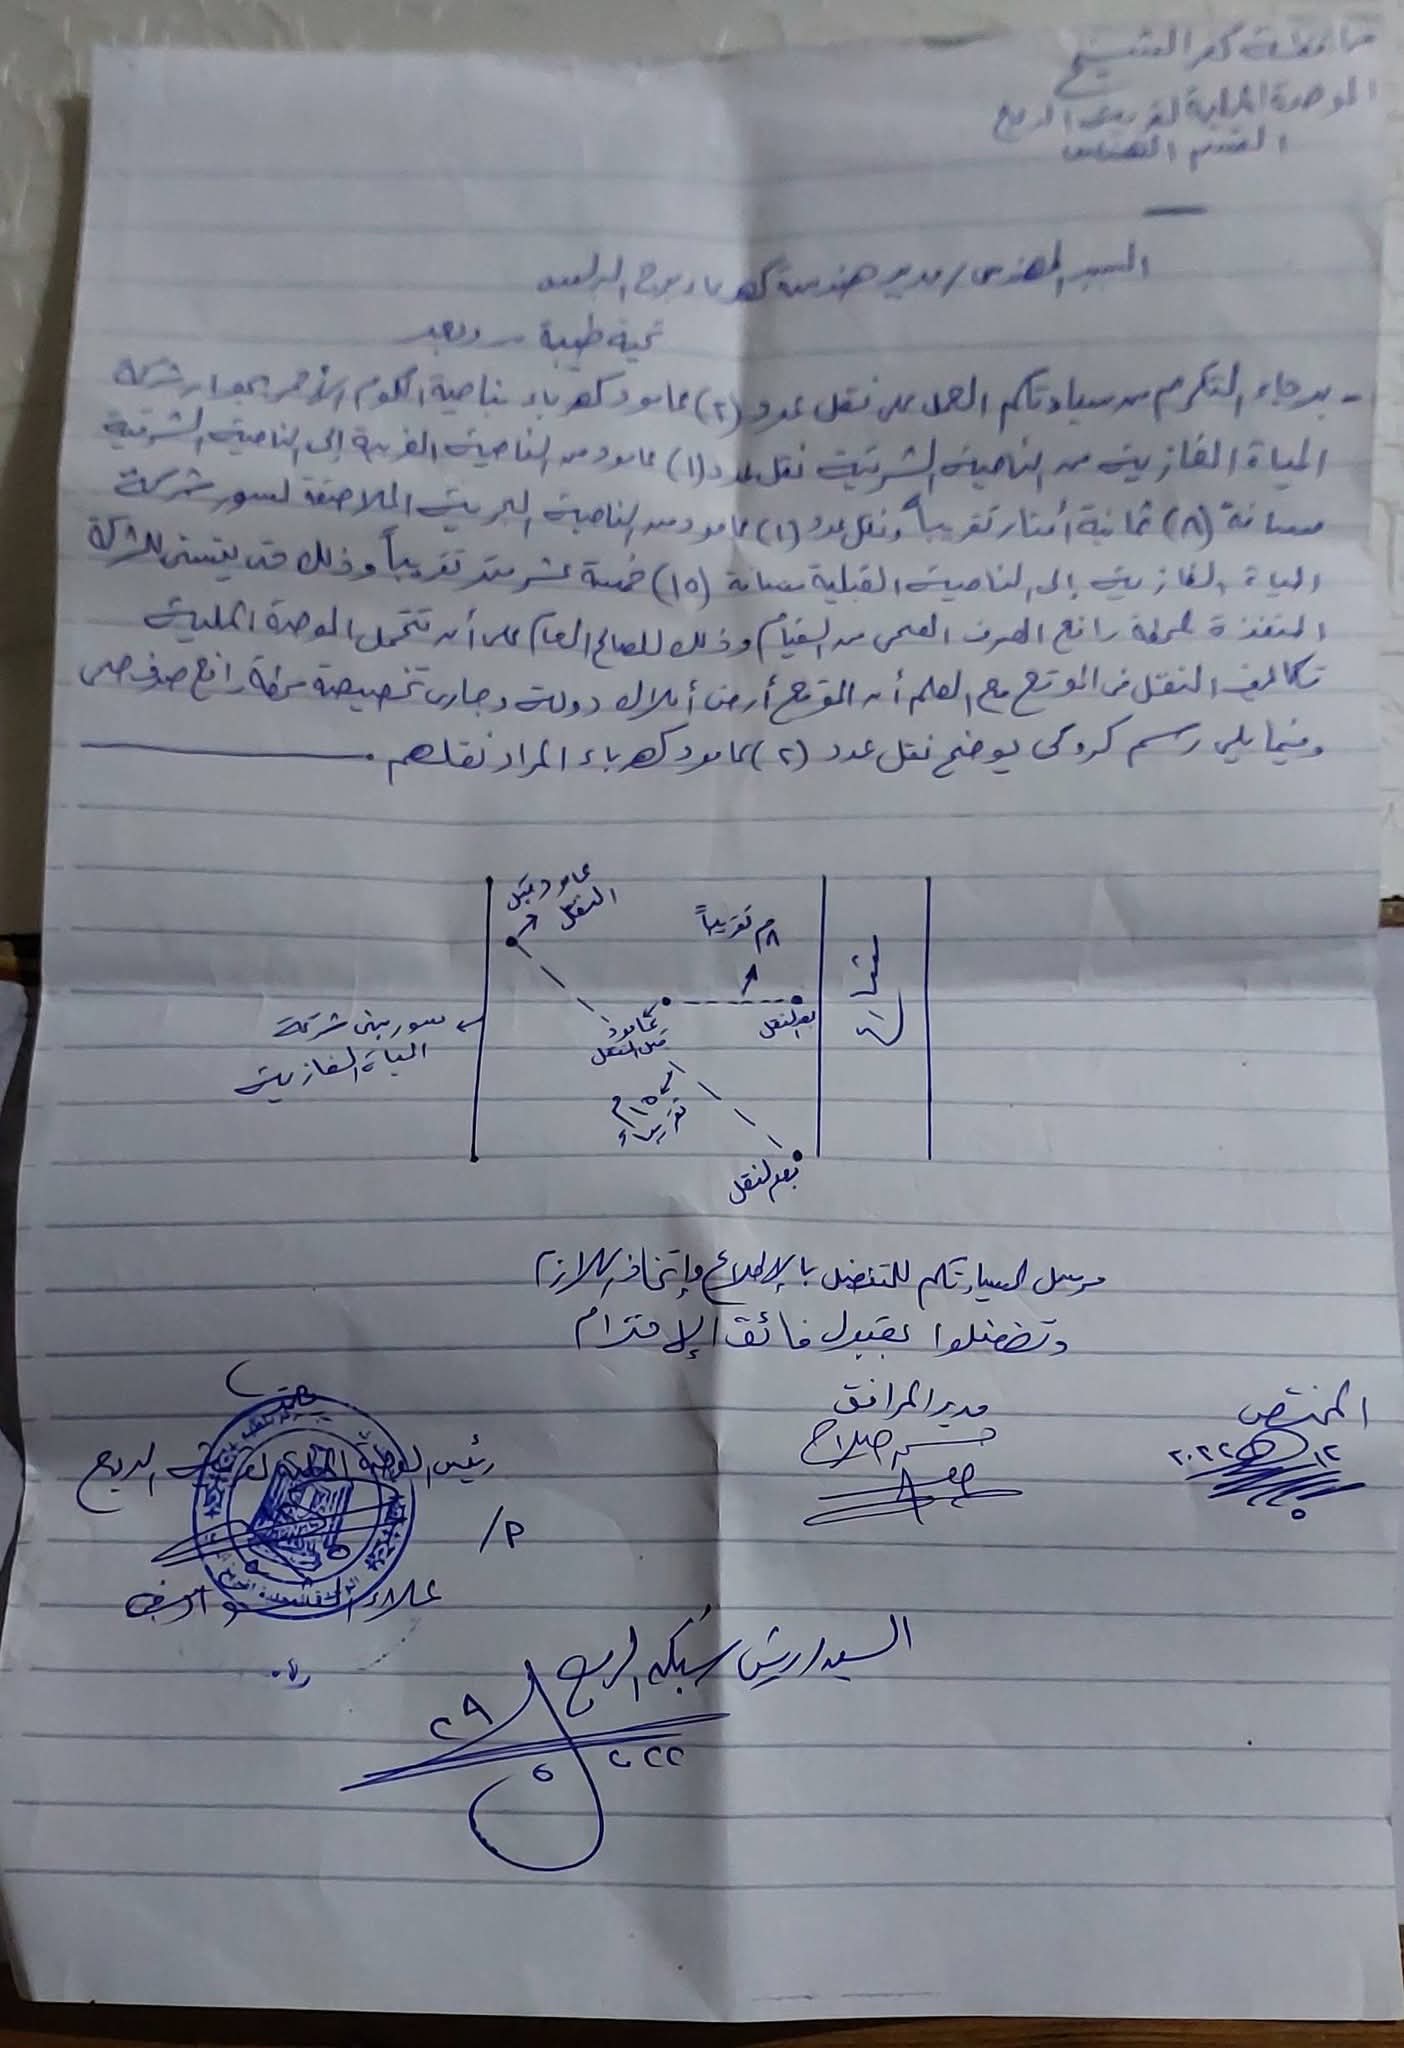 محافظة كفر الشيخ
الوحدة المحلية لقرية الربع
القسم الهندسى
السيد المهندس / مدير هندسة كهرباء برج البرلس
تحية طيبة وبعد
- برجاء التكرم من سيادتكم العمل على نقل عدد (٢) عامود كهرباء بناحية الكوم الأحمر بجوار شركة
المياة الغازية من الناحية الشرقية نقل عدد (١) عامود من الناحية الغربية إلى الناحية الشرقية
مسافة (٨) ثمانية أمتار تقريباً ونقل عدد (١) عامود من الناحية البحرية الملاصقة لسور شركة
المياة الغازية إلى الناحية القبلية مسافة (١٥) خمسة عشر متر تقريباً وذلك حتى يتسنى للشركة
المنفذة لمحطة رافع الصرف الصحى من القيام وذلك للصالح العام على أن تتحمل الوحدة المحلية
تكاليف النقل فى الموقع مع العلم أن الموقع أرض أملاك دولة وجارى تخصيصة محطة رافع صرف صحى
وفيما يلى رسم كروكى يوضح نقل عدد (٢) عامود كهرباء المراد نقلهم
عامود قبل
النقل
٨م تقريباً
شارع
سور مبنى شركة
المياة الغازية
عامود
قبل النقل
بعد النقل
١٥م
تقريباً
بعد النقل
مرسل لسيادتكم للتفضل بالإطلاع وإتخاذ اللازم
وتفضلوا بقبول فائق الإحترام
المختص
مدير المرافق
رئيس الوحدة المحلية لقرية الربع
صلاح
٢٠٢٢
م/
علاء
السيد / رئيس شبكة الربع
٢٩
٥
٢٠٢٢